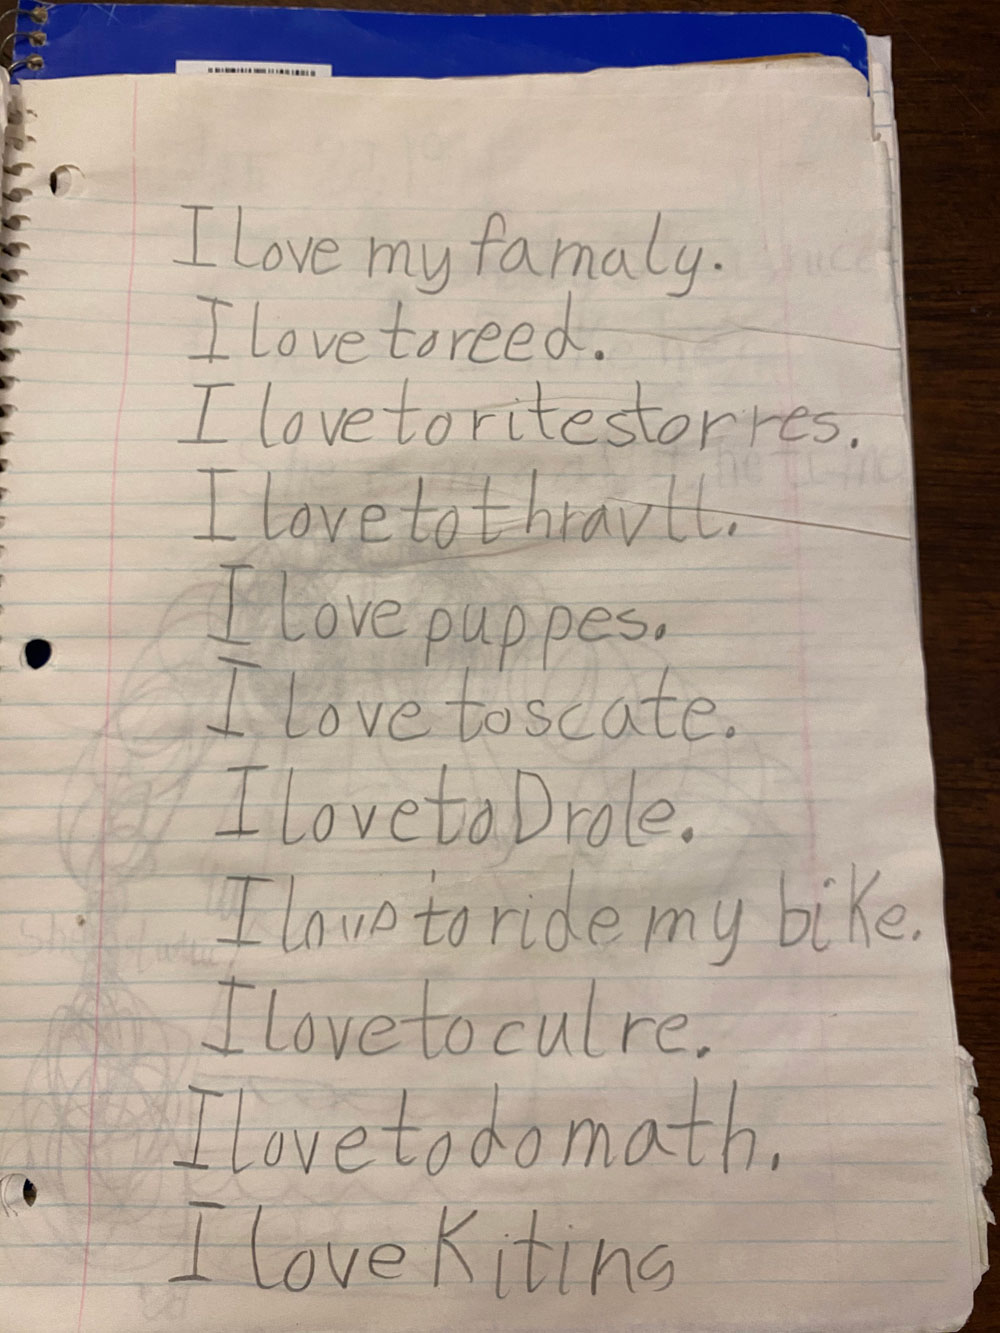 I love my famaly.
I love to reed.
I love to rite storres.
I love to thravll.
I love puppes.
I love to scate.
I love to Drole.
I love to ride my bike.
I love to culre.
I love to do math.
I love Kiting